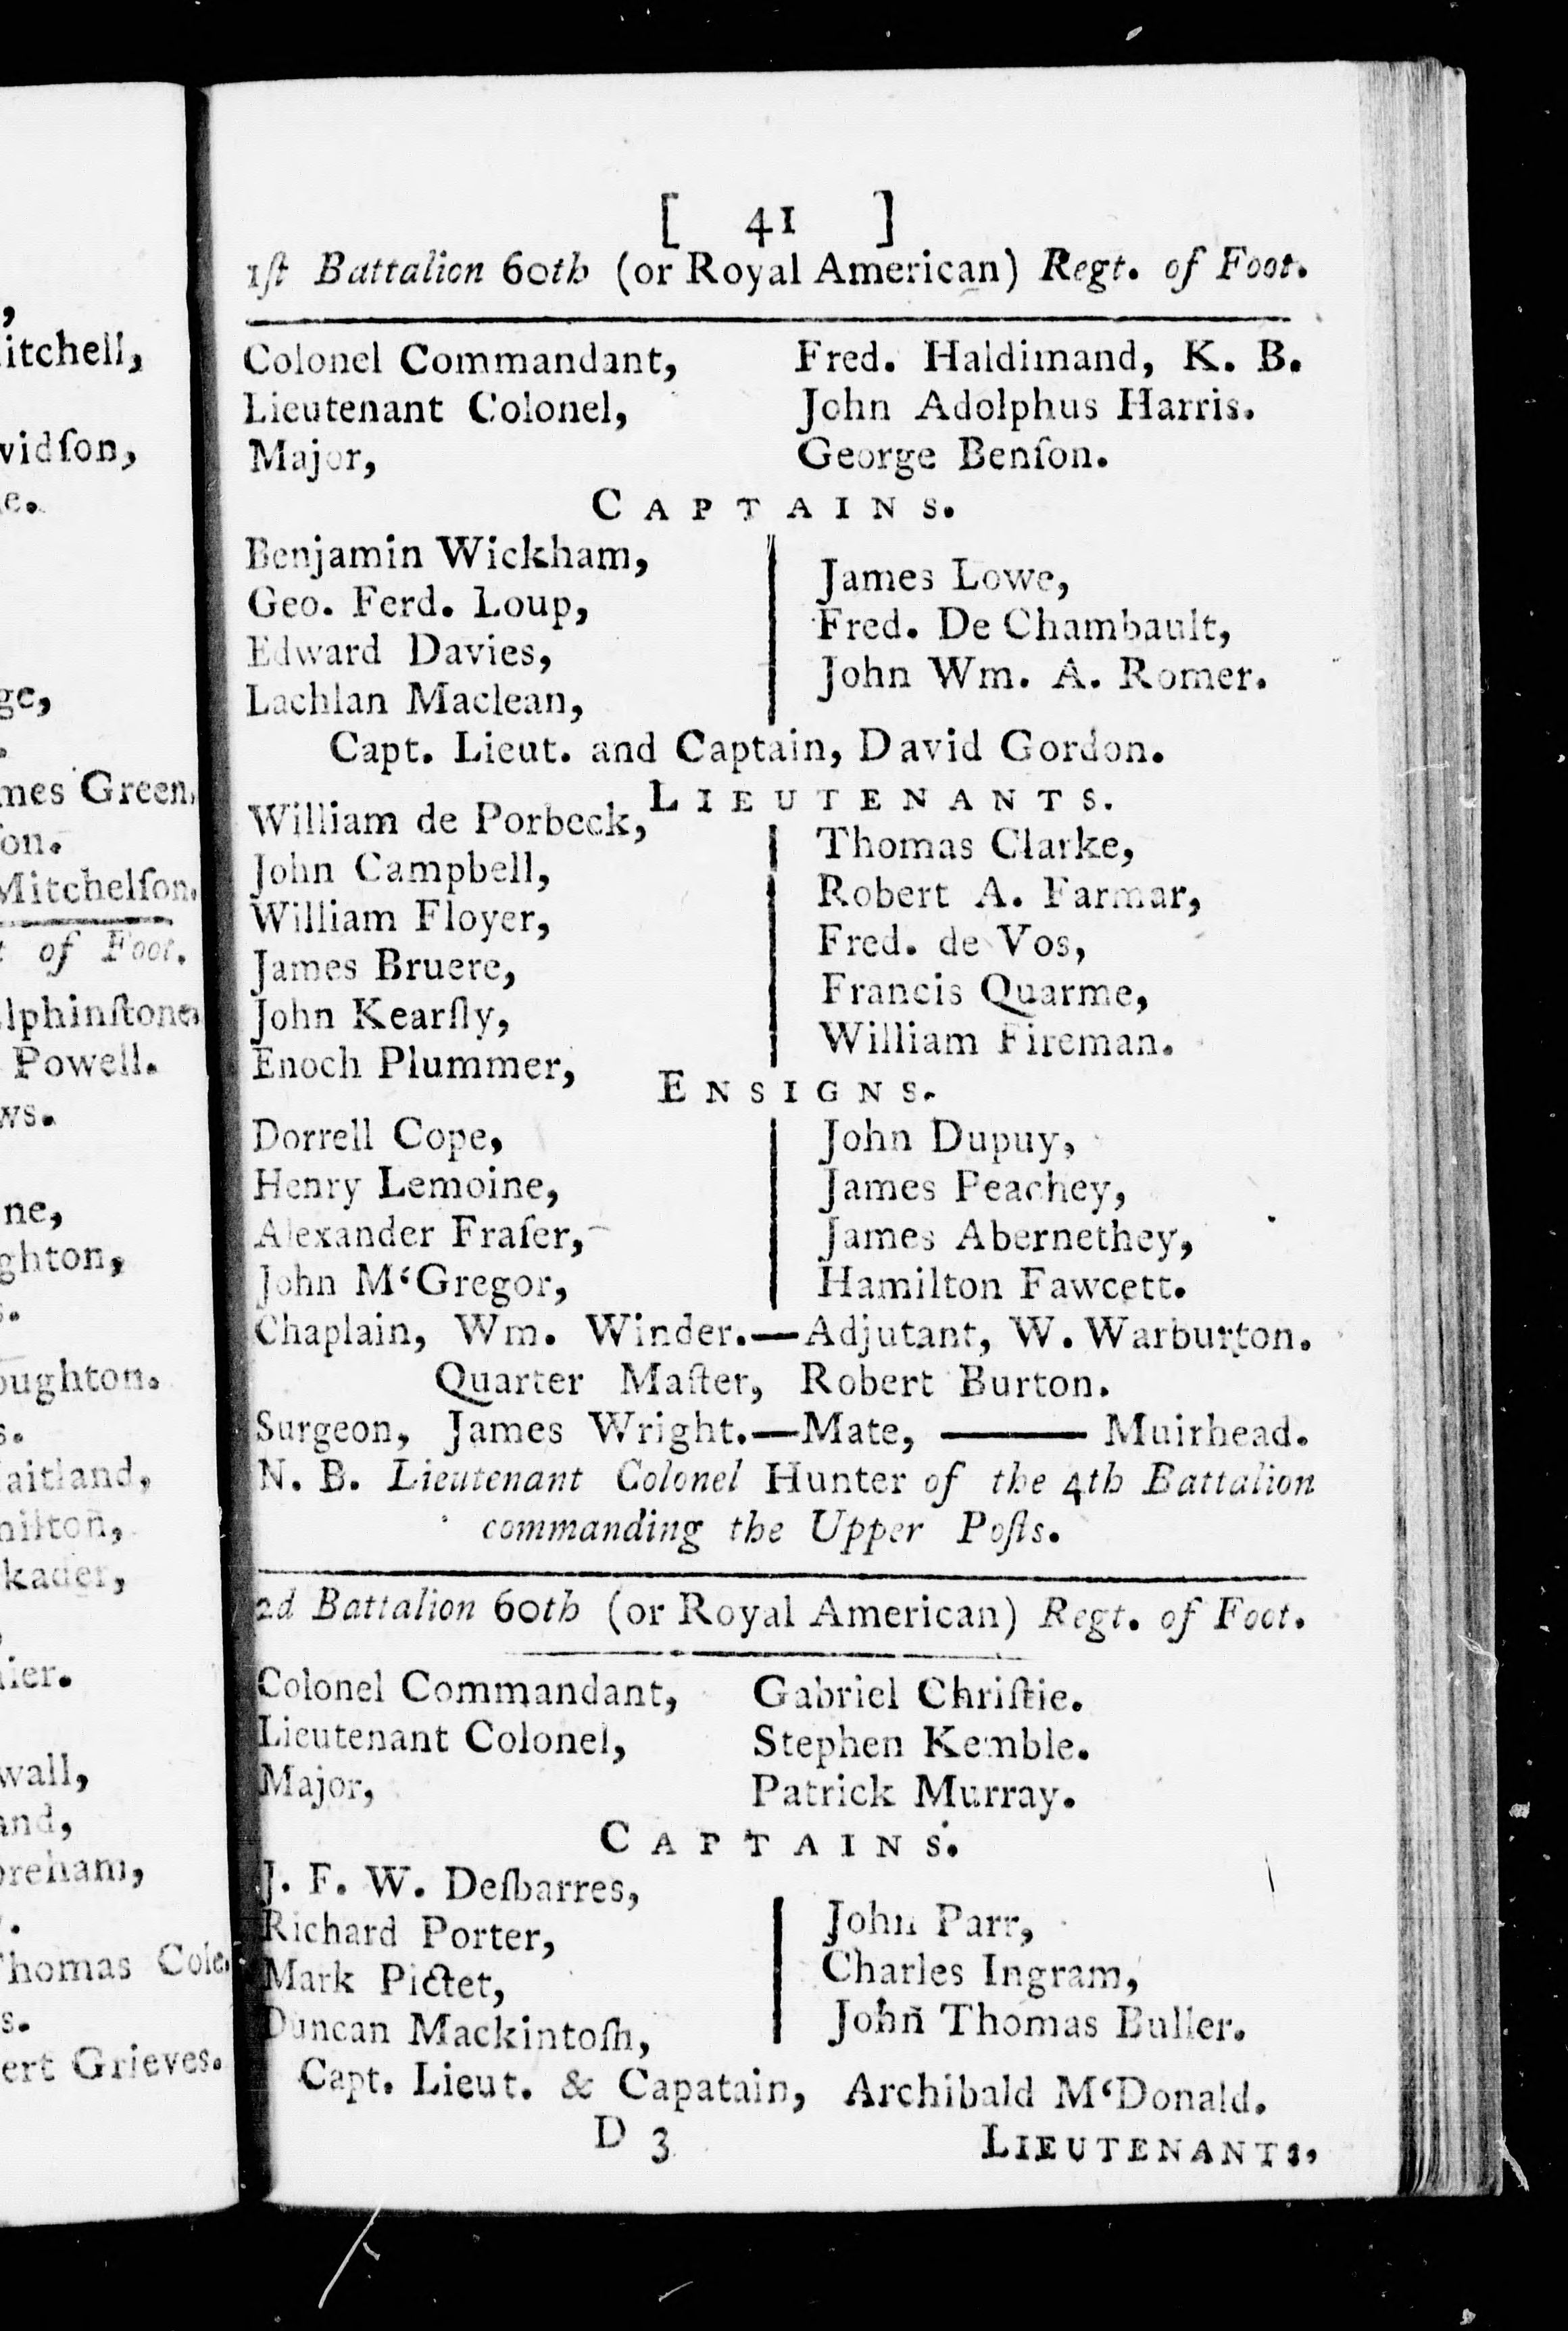 itchell,
vidſon,
ge,
mes Green.
ſon.
Mitchelſon.
of Foot.
lphinſtone.
Powell.
ws.
ne,
ghton,
oughton.
s.
aitland,
milton,
kader,
lier.
wall,
and,
oreham,
Thomas Cole.
s.
ert Grieves.
[ 41 ]
1ſt Battalion 60th (or Royal American) Regt. of Foot.
Colonel Commandant, Fred. Haldimand, K. B.
Lieutenant Colonel, John Adolphus Harris.
Major, George Benſon.
CAPTAINS.
Benjamin Wickham,
Geo. Ferd. Loup,
Edward Davies,
Lachlan Maclean,
James Lowe,
Fred. De Chambault,
John Wm. A. Romer.
Capt. Lieut. and Captain, David Gordon.
LIEUTENANTS.
William de Porbeck,
John Campbell,
William Floyer,
James Bruere,
John Kearſly,
Enoch Plummer,
Thomas Clarke,
Robert A. Farmar,
Fred. de Vos,
Francis Quarme,
William Fireman.
ENSIGNS.
Dorrell Cope,
Henry Lemoine,
Alexander Fraſer,
John M‘Gregor,
John Dupuy,
James Peachey,
James Abernethey,
Hamilton Fawcett.
Chaplain, Wm. Winder.—Adjutant, W. Warburton.
Quarter Maſter, Robert Burton.
Surgeon, James Wright.—Mate, ——— Muirhead.
N. B. Lieutenant Colonel Hunter of the 4th Battalion
commanding the Upper Poſts.
2d Battalion 60th (or Royal American) Regt. of Foot.
Colonel Commandant, Gabriel Chriſtie.
Lieutenant Colonel, Stephen Kemble.
Major, Patrick Murray.
CAPTAINS.
J. F. W. Deſbarres,
Richard Porter,
Mark Pictet,
Duncan Mackintoſh,
John Parr,
Charles Ingram,
John Thomas Buller.
Capt. Lieut. & Capatain, Archibald M‘Donald.
D 3
LIEUTENANTS,